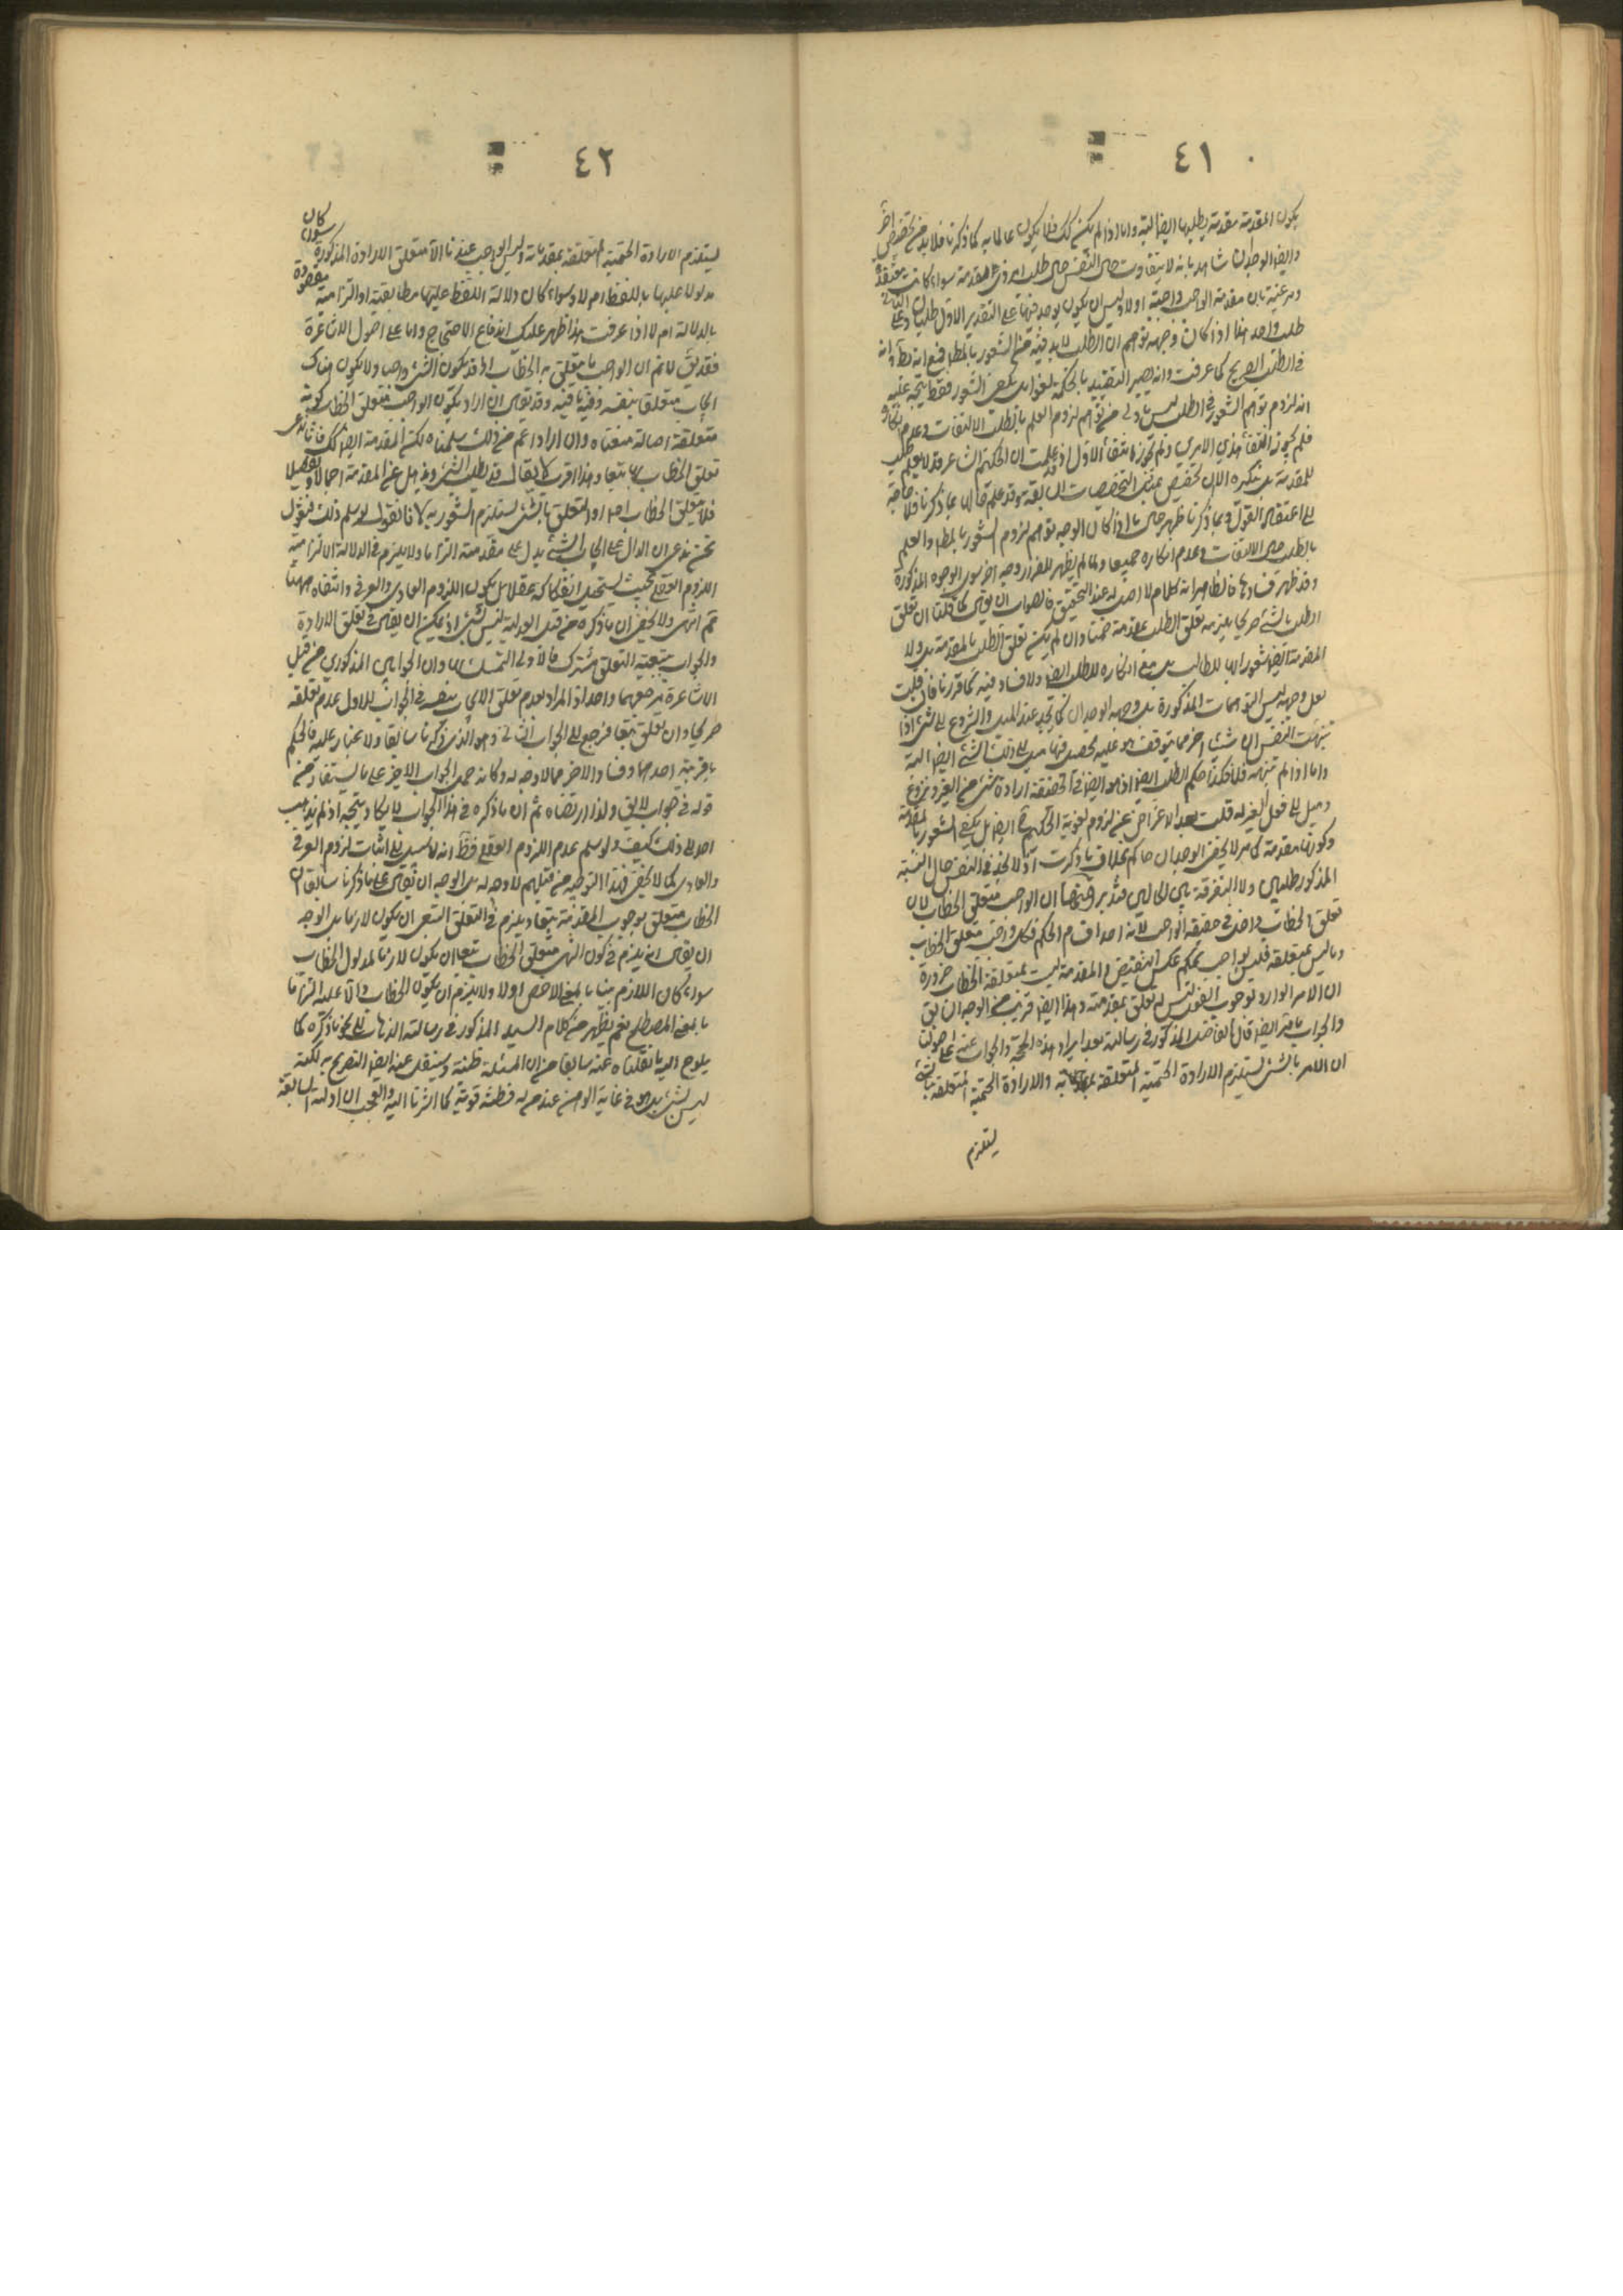 ٤١
يكون المقدمة مقدمة يطلبها ايضا البتة واما اذا لم يكن كك فلا يكون عالما به كما ذكرنا فلا بد من تخصيص اخر
وايضا الوجدان شاهد بانه لا يتفاوت حال النفس حال طلب امر ذى مقدمة سواء كانت معتقدة
بان مقدمة الواجب واجبة اولا وليس ان يكون يوجد فيها على التقدير الاول طلبان وعلى الثانى
طلب واحد هذا اذا كان وجهه توهم ان الطلب لا بد فيه من الشعور بالمطلوب
فى الطلب الصريح كما عرفت وانه يصير التقييد بالحكمة لغوا بل يكفى الشعور فقط يتجه عليه
انه لزوم توهم الشعور فى الطلب ليس باولى من توهم لزوم العلم بالطلب الالتفات وعدم انكاره
فلم يجوز انتفاء هذين الامرين ولم يجوز انتفاء الاول اذ قد علمت ان الحكيم الشاعر قد لا يعلم طلب
للمقدمة بل ينكره الا ان تخصيص بمثل التخصيصات السابقة وقد علم بما ذكرنا فلا حاجة
الى اعتقاد القول وبما ذكرنا ظهر حال ما اذا كان الوجه توهم لزوم الشعور بالمطلوب والعلم
بالطلب حال الالتفات وعدم انكاره جميعا ولما لم يظهر للفرار وجه اخر سوى الوجوه المذكورة
وقد ظهر فسادها فالظاهر انه كلام لا اصل له عند التحقيق فالصواب ان يقال كما قلنا ان تعلق
الطلب بالشئ صريحا يلزمه تعلق الطلب بمقدمته ضمنا وان لم يكن تعلق الطلب بالمقدمة بل ولا
المقدمة ايضا شعورا بها للطالب بل مع انكاره للطلب ايضا ولا فساد فيه كما قررنا فان قلت
لعل وجهه ليس التوهمات المذكورة بل وجهه الوجدان كما يجد عند الميل والشروع الى شئ اذا
تنبهت النفس ان شيئا اخر مما يتوقف هو عليه يحصل فيها ميل الى ذلك الشئ ايضا البتة
واما اذا لم تتنبه فلا فكذا حكم الطلب ايضا اذ هو ايضا فى الحقيقة ارادة شئ من الغير ونزوع
وميل الى فعل الغير له قلت بعد الاغماض عن لزوم لغوية الحكيم ايضا بل يكفى الشعور بالمقدمة
وكونها مقدمة كما مر لا يخفى الوجدان حاكم بخلاف ما ذكرت اذ لا نجد فى النفس حال التنبه
المذكور طلبين ولا التفرقة بين الحالين فتدبر ومنها ان الواجب متعلق الخطاب لان
تعلق الخطاب داخل فى حقيقة الواجب لانه احد اقسام الحكم فكل واجب متعلق الخطاب
وما ليس بمتعلقه فليس بواجب بحكم عكس النقيض والمقدمة ليست بمتعلقة الخطاب ضرورة
ان الامر الوارد لوجوب الغسل ليس له تعلق بمقدمته وهذا ايضا قريب من الوجه السابق
والجواب ما مر ايضا قال الفاضل المذكور فى رسالته بعد ايراد هذه الحجة والجواب عنه اما على اصولنا
ان الامر بالشئ يستلزم الارادة الحتمية المتعلقة به والارادة الحتمية المتعلقة بالشئ
يستلزم
٤٢
يستلزم الارادة الحتمية المتعلقة بمقدماته وليس الواجب عندنا الا متعلق الارادة المذكورة سواء كان
مدلولا عليها باللفظ ام لا وسواء كان دلالة اللفظ عليها مطابقية او التزامية مقصودة
بالدلالة ام لا اذا عرفت هذا ظهر عليك اندفاع الاحتجاج واما على اصول الاشاعرة
فقد يق لا نم ان الواجب ما يتعلق به الخطاب اذ قد يكون الشئ واجبا ولا يكون هناك
ايجاب متعلق بنفسه وفيه ما فيه وقد يقال ان اراد بكون الواجب متعلق الخطاب كونه
متعلقه اصالة منعناه وان اراد اعم من ذلك سلمناه لكن المقدمة ايضا كك فانا ندعى
تعلق الخطاب بها تبعا وهذا اقرب لا يقال قد يطلب الشئ ويذهل عن المقدمة اجمالا وتفصيلا
فلا يتعلق الخطاب اصلا والتعلق بالشئ يستلزم الشعور به لانا نقول لو سلم ذلك فنقول
نحن ندعى ان الدال على ايجاب الشئ يدل على مقدمته التزاما ولا يلزم فى الدلالة الالتزامية
اللزوم العقلى بحيث يستحيل انفكاكه عقلا بل يكون اللزوم العادى والعرفى وانتفاه ههنا
مم انتهى ولا يخفى ان ما ذكره من قبل العدلية ليس بشئ اذ يمكن ان يقال فى تعلق الارادة
والجواب بتبعية التعلق مشترك فالاولى التمسك بها وان الجوابين المذكورين من قبل
الاشاعرة مرجعهما واحد اذ المراد بعدم تعلق الايجاب بنفسه فى الجواب الاول عدم تعلقه
صريحا وان تعلق تبعا فرجع الى الجواب الثانى وهو الذى ذكرنا سابقا ولا غبار عليه فالحكم
باقربية احدهما وفساد الاخر مما لا وجه له وكانه حمل الجواب الاخير على ما يستفاد من
قوله فى جواب لا يق ولذا ارتضاه ثم ان ما ذكره فى هذا الجواب لا يكاد يتجه اذ لم يذهب
احد الى ذلك كيف ولو سلم عدم اللزوم العقلى فظ انه لا سبيل الى اثبات لزوم العرفى
والعادى كما لا يخفى فهذا التوجيه من قبلهم لا وجه له بل الوجه ان يقال على ما ذكرنا سابقا ان
الخطاب متعلق بوجوب المقدمة تبعا ولا يلزم فى التعلق التبعى ان يكون لازما بل الوجه
ان يقال انه يلزم فى كون الشئ متعلق الخطاب تبعا ان يكون لازما لمدلول الخطاب
سواء كان اللازم بينا بالمعنى الاخص اولا ولا يلزم ان يكون الخطاب دالا عليه التزاما
بالمعنى المصطلح نعم يظهر من كلام السيد المذكور فى رسالته الذهاب الى نحو ما ذكره كما
يلوح اليه ما نقلناه عنه سابقا من ان المسئلة ظنية وسينقل عنه ايضا التصريح به لكنه
ليس بشئ بل هو فى غاية الوهن عند من له فطنة قوية كما اشرنا اليه والعجب ان ادلته السابقة